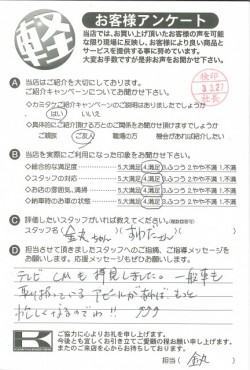 軽
お客様アンケート
当店では、お買い上げ頂いたお客様の声を可能
な限り現場に反映し、お客様により良い商品と
サービスを提供する事に努めています。
大変お手数ですが是非お声をお聞かせ下さい。
検印
3.3.27
社長
A 当店はご紹介を大切にしております。
ご紹介キャンペーンについてお聞かせ下さい
◇カミタケご紹介キャンペーンのご説明はありましたでしょうか
はい いいえ
◇具体的にご紹介頂ける方とのご関係をお聞かせ頂けますでしょうか
ご親戚 ご友人 職場の方 機会があれば紹介したい
B 当店を実際にご利用になった印象をお聞かせ下さい。
◇総合的な満足度 5.大満足 4.満足 3.ふつう 2.やや不満 1.不満
◇スタッフの対応 5.大満足 4.満足 3.ふつう 2.やや不満 1.不満
◇お店の雰囲気、清掃 5.大満足 4.満足 3.ふつう 2.やや不満 1.不満
◇納車時のお車の状態 5.大満足 4.満足 3.ふつう 2.やや不満 1.不満
C 評価したいスタッフがいれば教えてください。(複数回答可)
スタッフ名( 金丸ちゃん )( )
D 担当させて頂きましたスタッフへのご指摘、ご指導メッセージを
お願いします。応援メッセージもぜひお願いします。
テレビCMも拝見しました。一般車も
取りあつかっているアピールがあればもっと
忙しくなるのでは!!
K
ご協力に心よりお礼を申し上げます。
今後とも宜しくお引き立てご愛顧の程お願い申し上げます。
またのご来店を心からお待ちしております。
担当( 金丸 )